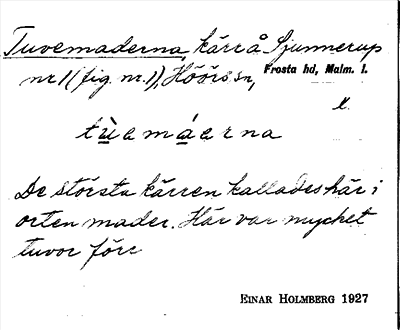 Tuvemaderna, kärr å Sjunnerup
nr 1 (fig. nr. 1), Höörs sn, Frosta hd, Malm. l.
l.
tùemáerna
De största kärren kallades här i
orten mader. Här var mycket
tuvor förr
EINAR HOLMBERG 1927